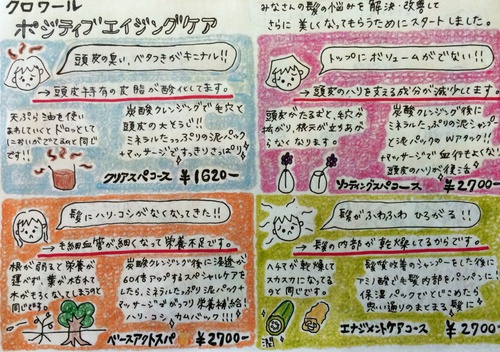 クロワール
ポジティブエイジングケア
みなさんの髪の悩みを解決・改善して
さらに美しくなってもらうためにスタートしました。
頭皮の臭い、ベタつきがキニナル!!
→頭皮特有の皮脂が酸化してます。
天ぷら油を使い
まわしていくとドロッとして
においがでてるのと同じ
です!!
炭酸クレンジングで毛穴と
頭皮の大そうじ!!
ミネラルたっぷりの泥パック
+マッサージですっきりさっぱり
クリアスパコース ¥1620-
トップにボリュームがでない!!
→頭皮のハリを支える成分が減少してます。
頭皮がたるむと、毛穴が
広がり、根元が立ちあが
らなくなります。
炭酸クレンジング後に
ミネラルたっぷりの泥シャンプー
と泥パックのWアタック!!
+マッサージで血行よくなり
頭皮のハリが復活
リフティングスパコース ¥2700-
髪にハリ・コシがなくなってきた!!
→毛細血管が細くなって栄養不足です。
根が弱ると栄養が
運べず、葉が木が水で
木がもろくなってしまうのと
同じです。
炭酸クレンジング後に浸透が
60倍アップするスペシャルケアを
したら、ミネラルたっぷり泥パック+
マッサージでがっつり栄養補給!
ハリ・コシカムバック!!!
ベースアクトスパ ¥2700-
髪がふわふわひろがる!!
→髪の内部が乾燥してるからです。
ヘチマが乾燥して
スカスカになってる
のと同じです。
潤
髪質改善のシャンプーをした後に
アミノ酸で毛髪内部をパンパンに!
保湿パックでとじこめたら
思い通りのまとまる髪に
エナジメントケアコース
¥2700-